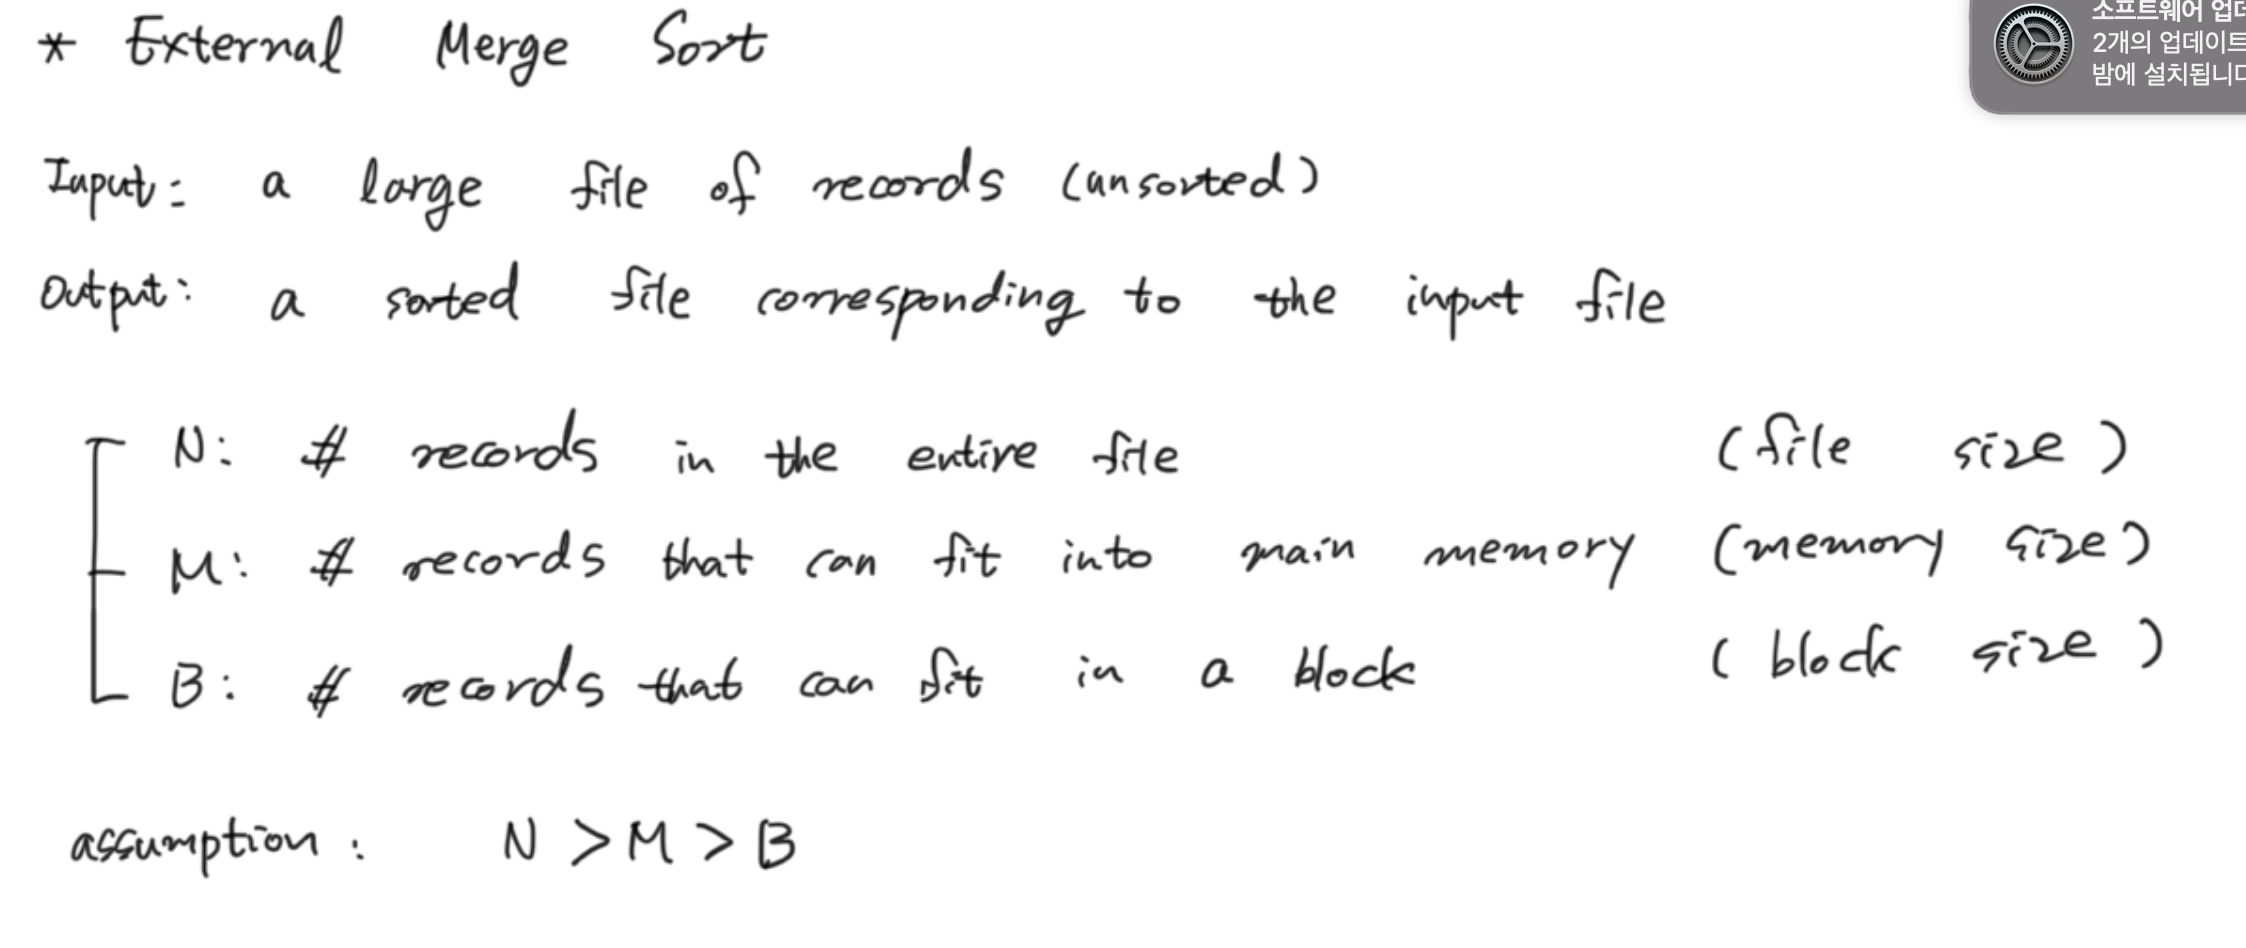 * External Merge Sort
소프트웨어
2개의 업데이트
밤에 설치됩니다
Input: a large file of records (unsorted)
Output: a sorted file corresponding to the input file
N: # records in the entire file (file size)
M: # records that can fit into main memory (memory size)
B: # records that can fit in a block (block size)
assumption: N > M > B